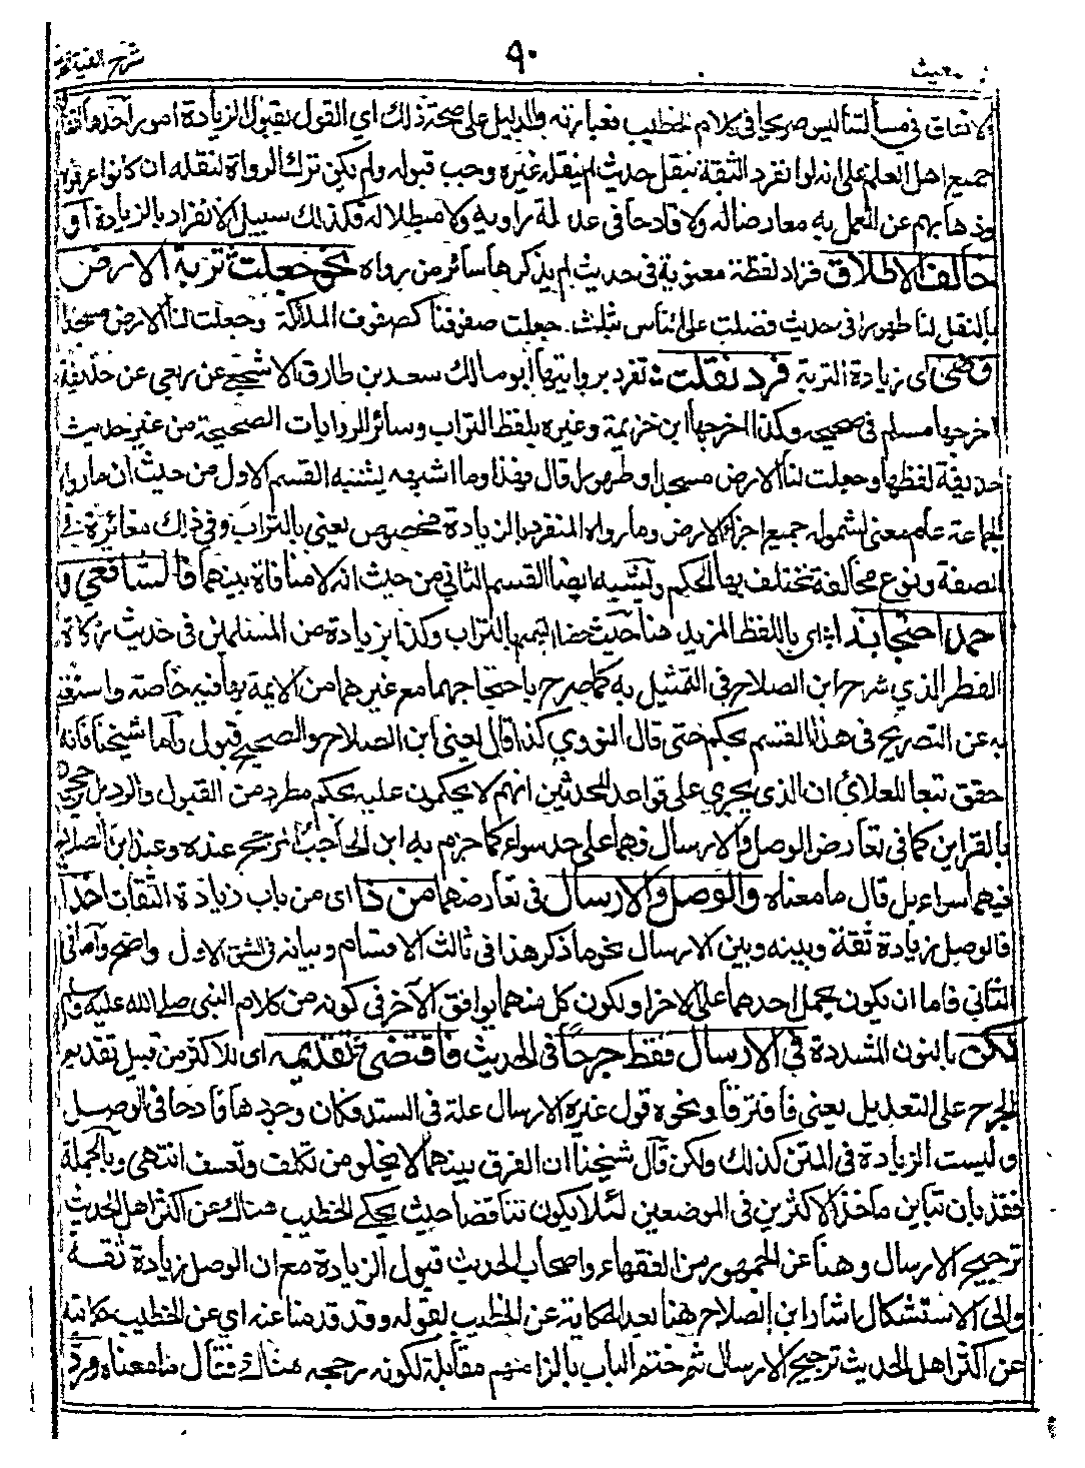 شرح الفية
٩٠
الاتفاق في مسألتنا ليس صريحا في كلام الخطيب فعبارته والدليل على صحة ذلك اي القول بقبول الزيادة امور احدها اتفاق
جميع اهل العلم على انه لو انفرد الثقة بنقل حديث لم ينقله غيره وجب قبوله ولم يكن ترك الرواة لنقله ان كانوا عرفوه
وذهابهم عن العمل به معارضا له ولا قادحا في عدالة راويه ولا مبطلا له فكذلك سبيل الانفراد بالزيادة او
خالف الاطلاق فزاد لفظة معنوية في حديث لم يذكرها سائر من رواه نحو جعلت تربة الارض
بالنقل لنا طهورا في حديث فضلت على الناس بثلث جعلت صفوفنا كصفوف الملائكة وجعلت لنا الارض مسجدا
وهي اى زيادة التربة فرد نقلت تفرد بروايتها أبو مالك سعد بن طارق الاشجعي عن ربعي عن حذيفة
اخرجها مسلم في صحيحه وكذا اخرجها ابن خزيمة وغيره بلفظ التراب وسائر الروايات الصحيحة من غير حديث
حذيفة لفظها وجعلت لنا الارض مسجدا وطهورا قال فهذا وما اشبهه يشبه القسم الاول من حيث ان ما رواه
الجماعة عام يعنى لشموله جميع اجزاء الارض وما رواه المنفرد بالزيادة مخصوص يعنى بالتراب وفي ذلك مغائرة في
الصفة ونوع مخالفة يختلف بها الحكم ويشبه ايضا القسم الثاني من حيث انه لا منافاة بينهما فالشافعي و
احمد احتجا بذا اى باللفظ المزيد هنا حيث خصا التيمم بالتراب وكذا بزيادة من المسلمين في حديث زكاة
الفطر الذي شرح ابن الصلاح في التمثيل به كما صرح باحتجاجهما مع غيرهما من الايمة بها فيه خاصة واستغنى
به عن التصريح في هذا القسم بحكم حتى قال النووي كذا قال يعنى ابن الصلاح والصحيح قبول واما شيخنا فانه
حقق تبعا للعلائي ان الذى يجري على قواعد المحدثين انهم لا يحكمون عليه بحكم مطرد من القبول والرد بل يرجحون
بالقراين كما في تعارض الوصل والارسال فهما على حد سواء كما جزم به ابن الحاجب عنده وعند ابن الصلاح
فيهما سواء بل قال ما معناه والوصل والارسال في تعارضهما من ذا اى من باب زيادة الثقات اخذا
فالوصل زيادة ثقة وبينه وبين الارسال نحو ما ذكر هذا في ثالث الاقسام وبيانه في الشق الاول واضح وأما في
الثاني فاما ان يكون بحمل احدهما على الاخر او بكون كل منهما يوافق الآخر في كونه من كلام النبي صلى الله عليه وسلم
لكن بالنون المشددة في الارسال فقط جرحا في الحديث فاقتضى تقديمه اى للاكثر من قبيل تقديم
الجرح على التعديل يعني فافترقا ونحوه قول غيره الارسال علة في السند فكان وجودها قادحا في الوصل
وليست الزيادة في المتن كذلك ولكن قال شيخنا ان الفرق بينهما لا يخلو من تكلف وتعسف انتهى وبالجملة
فقد بان تباين ماخذ الاكثرين في الموضعين لئلا يكون تناقضا حيث يحكي الخطيب هناك عن اكثر اهل الحديث
ترجيح الارسال وهنا عن الجمهور من الفقهاء واصحاب الحديث قبول الزيادة مع ان الوصل زيادة ثقة
والى الاستشكال اشار ابن الصلاح هنا بعد الحكاية عن الخطيب لقوله وقد قدمنا عنه اي عن الخطيب حكايته
عن اكثر اهل الحديث ترجيح الارسال ثم ختم الباب بالزامهم مقابله لكونه رجحه هناك فقال ما معناه ورد